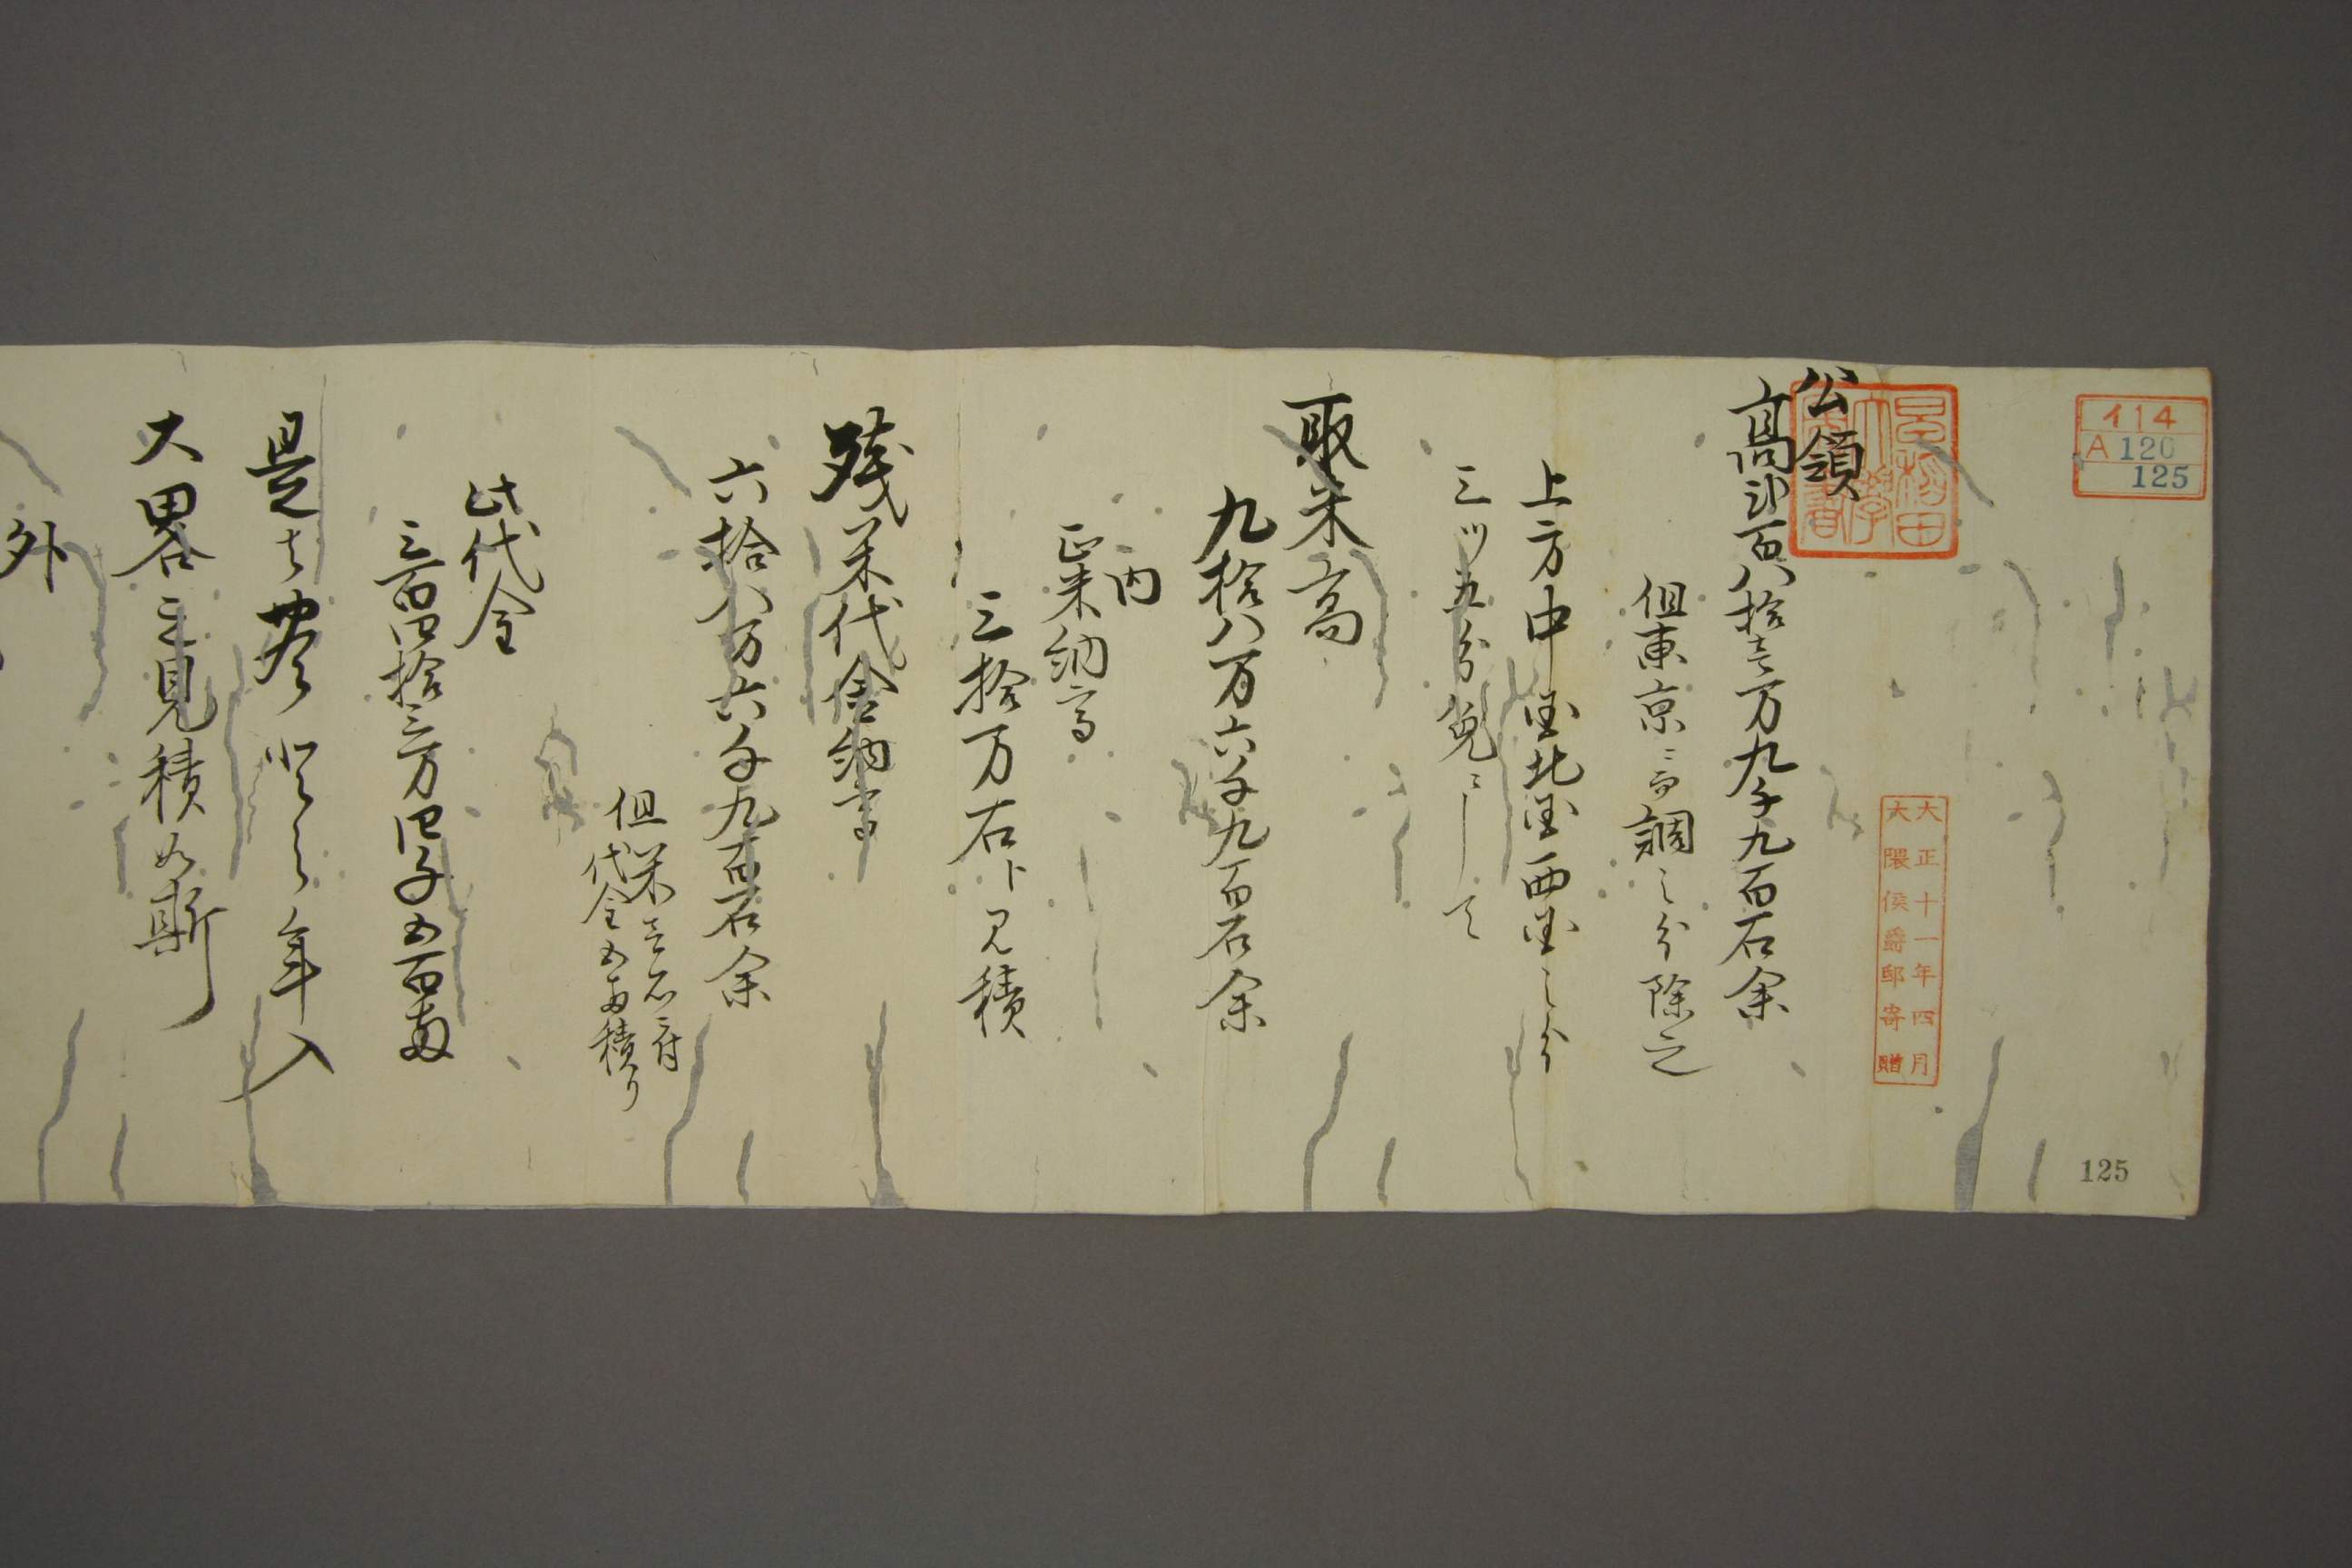 イ14
A 120
125
早稲田
大学
図書
大正十一年四月
大隈侯爵邸寄贈
125
公領
高弐百八拾壱万九千九百石余
但東京ニ而調之分除之
上方中国北国西国之分
三ツ五分免ニして
取米高
九拾八万六千九百石余
内
正米納高
三拾万石ト見積
残米代金納高
六拾八万六千九百石余
但米壱石ニ付
代金五両積り
此代金
三百四拾三万四千五百両
是者之年入
大畧之見積如斯
外